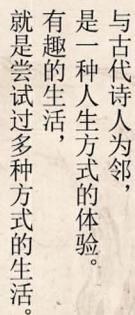 与古代诗人为邻，
是一种人生方式的体验。
有趣的生活，
就是尝试过多种方式的生活。